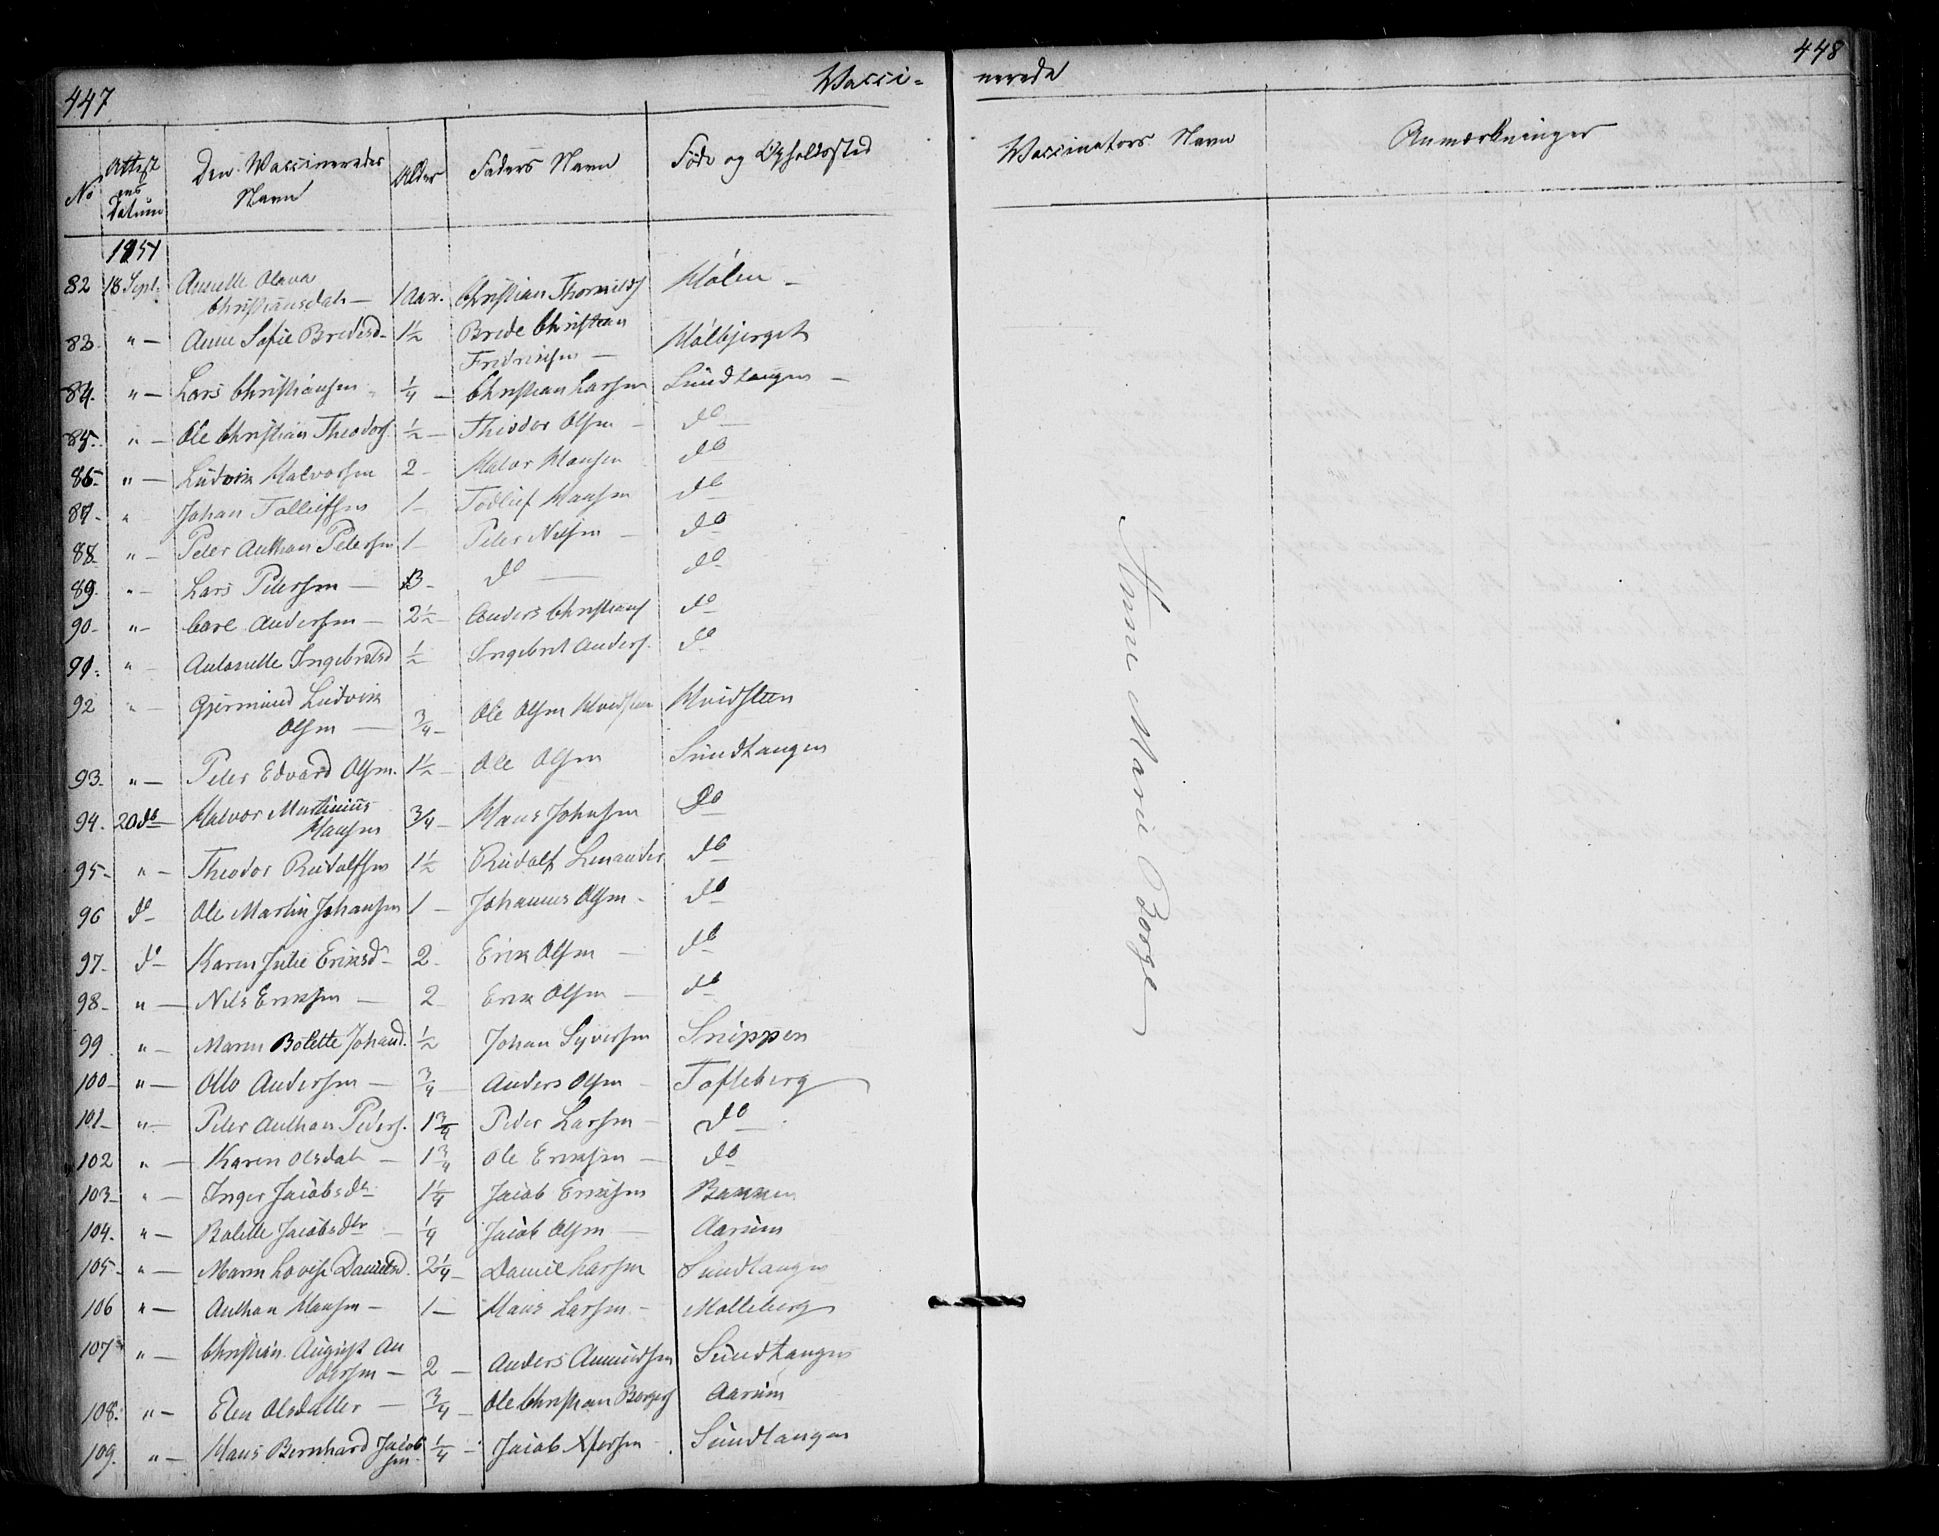 447
Vacci-
nerede
448
No
Attest
ens
Datum
Den Vaccineredes
Navn
Alder
Faders Navn
Føde og Opholdssted
Vaccinators Navn
Anmærkninger
1851
82 18 Sept. Olava
Christiansdatr — 1 Aar. Christian Hølen —
83. " — Anne Sofie Bredesd– 1½ Brede Christian Hølbjerget
Fredriksen —
84. " — Lars Christiansen ¼ — Christian Larsen Sundtangen —
85. " — Ole Christian Theodors. ½ — Theodor Olsen — do —
86– " — Ludvik Halvorsen 2 – Halvor Hansen do
87– " Johan Tolleifsen 1 – Hansen do
88. " – Peter Anthon Petersen 1 – Peter Nilsen — do
89. " – Lars Petersen — 3 – do — do
90– " – Carl Andersen — 2½ – Anders Christians. do
91. " – Ingebretsd ½ – Ingebret Anders. do
92 " – Gjermund Ludvik
Olsen — ¾ – Ole Olsen Hvidsteen Hvidsteen
93. " – Peter Edvard Olsen. 1½ – Ole Olsen Sundtangen
94. 20 do Halvor Martinius
Hansen ¾ – Hans Johnsen do
95– " – Theodor Rudolfsen 1½ Rudolf Lenander do
96 do Ole Martin Johansen 1 – Johannes Olsen – do
97. do Karen Julie Eriksd– 2 – Erik Olsen — do
98. " — Nils Eriksen — 2 – Erik Olsen — do
99 " – Maren Bolette Johansd. ½ Johan Syversen Snippen
100– " — Otto Andersen — ¾ – Anders Olsen – Tofteberg
101– " – Peter Anthon Peders. 1¾ Peder Larsen – do
102 " — Karen Olsdatr — 1¾ Ole Eriksen — do
103– " – Inger Jacobsdr 1¼ Jacob Eriksen Bakken
104. " – Bolette Jacobsdr — ¼ Jacob Olsen — Aarum
105. " — Maren Lovise Danielsd. 2¼ – Daniel Larsen Sundtangen
106 " – Anthon Hansen – 1 — Hans Larsen – Molteberg
107 " — Christian August An
dersen — 2 – Anders Amundsen Sundtangen
108. " – Elen Olsdatter — ¾ – Ole Christian Borgers. Aarum
109. " — Hans Bernhard Jacob
sen ¼ – Jacob Xfersen – Sundtangen
Anne Marie Borge